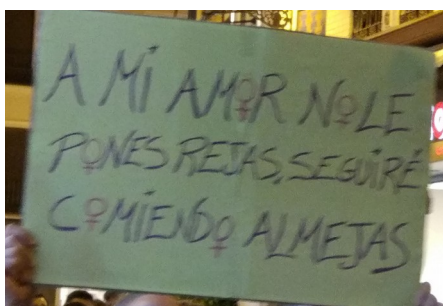 A MI AMOR NO LE
PONES REJAS, SEGUIRÉ
COMIENDO ALMEJAS